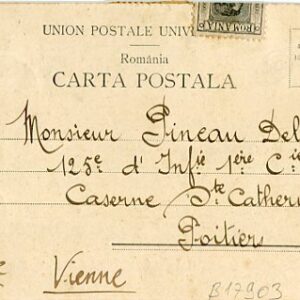 UNION POSTALE UNIV
ROMANIA
România
CARTA POSTALA
Monsieur Pineau Del
125e d'Infie 1ère Cie
Caserne Ste Cather
Poitiers
Vienne
B17903